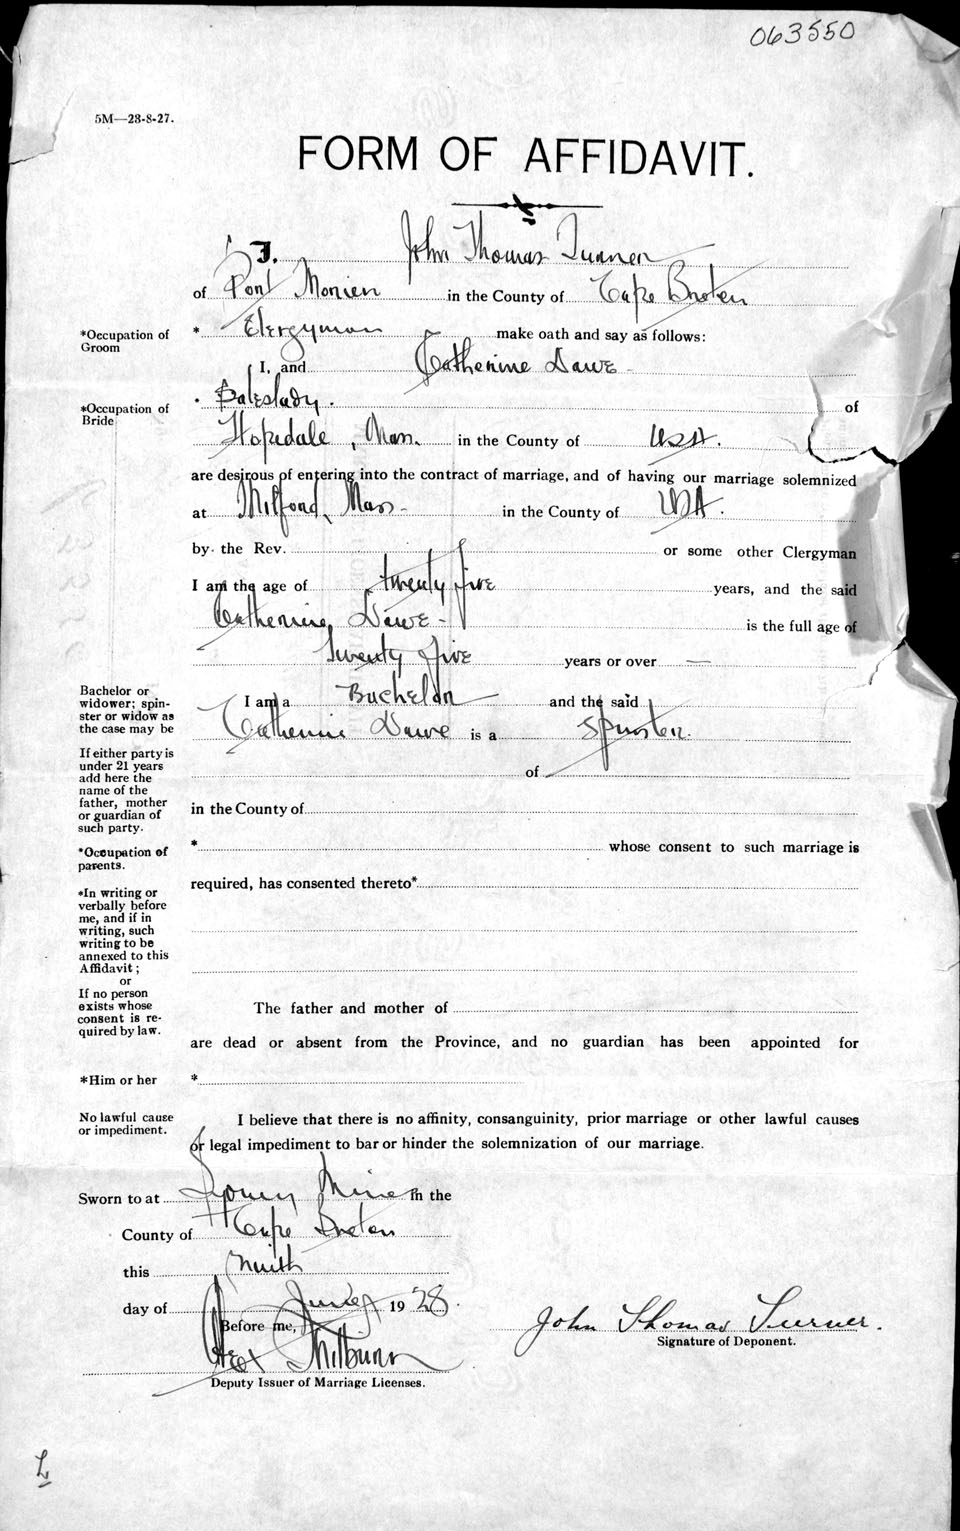 063550
5M—23-8-27.
FORM OF AFFIDAVIT.
I, John Thomas Turner
of Port Morien in the County of Cape Breton
*Occupation of Groom * Clergyman make oath and say as follows:
I, and Catherine Dawe
*Occupation of Bride Saleslady of
Hopedale, Mass. in the County of USA.
are desirous of entering into the contract of marriage, and of having our marriage solemnized
at Milford, Mass in the County of USA.
by the Rev. or some other Clergyman
I am the age of twenty five years, and the said
Catherine Dawe is the full age of
Twenty five years or over —
Bachelor or widower; spinster or widow as the case may be
I am a Bachelor and the said
Catherine Dawe is a Spinster.
If either party is under 21 years add here the name of the father, mother or guardian of such party.
of
in the County of
*Occupation of parents.
* whose consent to such marriage is
required, has consented thereto*
*In writing or verbally before me, and if in writing, such writing to be annexed to this Affidavit;
or
If no person exists whose consent is required by law.
The father and mother of
are dead or absent from the Province, and no guardian has been appointed for
*Him or her *
No lawful cause or impediment.
I believe that there is no affinity, consanguinity, prior marriage or other lawful causes
or legal impediment to bar or hinder the solemnization of our marriage.
Sworn to at Sydney Mines in the
County of Cape Breton
this Ninth
day of June 1928.
Before me,
John Thomas Turner.
Signature of Deponent.
Deputy Issuer of Marriage Licenses.
L